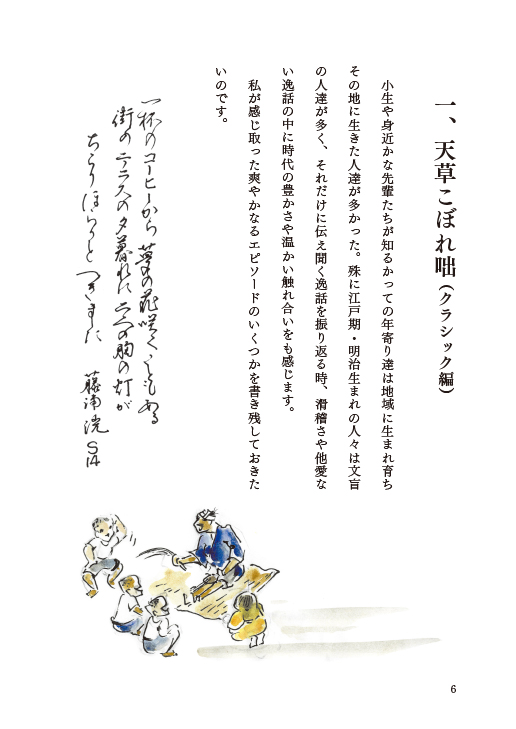 一、天草こぼれ咄(クラシック編)
小生や身近かな先輩たちが知るかっての年寄り達は地域に生まれ育ち
その地に生きた人達が多かった。殊に江戸期・明治生まれの人々は文盲
の人達が多く、それだけに伝え聞く逸話を振り返る時、滑稽さや他愛な
い逸話の中に時代の豊かさや温かい触れ合いをも感じます。
私が感じ取った爽やかなるエピソードのいくつかを書き残しておきた
いのです。
一杯のコーヒーから 夢の花咲くこともある
街のテラスの夕暮れに 二人の胸の灯が
ちらりほらりと つきました 藤浦洸 S14
6